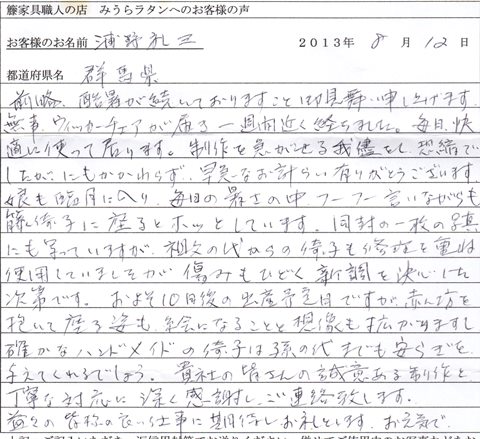 籐家具職人の店　みうらラタンへのお客様の声
お客様のお名前 浦野礼三 2013年 8月12日
都道府県名 群馬県
前略 酷暑が続いておりますこと御見舞い申し上げます。
無事、ウィッカーチェアが届き一週間近く経ちました。毎日、快
適に使って居ります。製作を急がせる我儘をし、恐縮で
したが、にもかかわらず、早急なお計らい有りがとうございます。
娘も臨月に入り、毎日の暑さの中、フーフー言いながらも
籐椅子に座るとホッとしています。同封の一枚の写真
にも写っていますが、祖父の代からの椅子も修理を重ね
使用していましたが 傷みもひどく 新調を決心した
次第です。およそ10日後の出産予定日ですが、赤ん坊を
抱いて座る姿も、絵になることと想像も広がりますし
確かなハンドメイドの椅子は孫の代までも安らぎを
与えてくれるでしょう。貴社の皆さんの誠意ある製作と
丁寧な対応に深く感謝し、ご連絡致します。
益々の皆様の良い仕事に期待しお礼とします お元気で